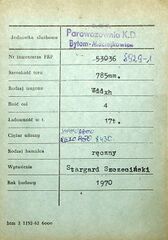 Jednostka służbowa
Parowozownia K.D.
Bytom-Karb Wąskotor
Nr inwentarza PKP 53036 8429-1
Szerokość toru 785mm.
Rodzaj wagonu Wddxh
Ilość osi 4
Ładowność w t. 17t.
Ciężar własny 8430
Rodzaj hamulca ręczny
Wytwórnia Stargard Szczeciński
Rok budowy 1970